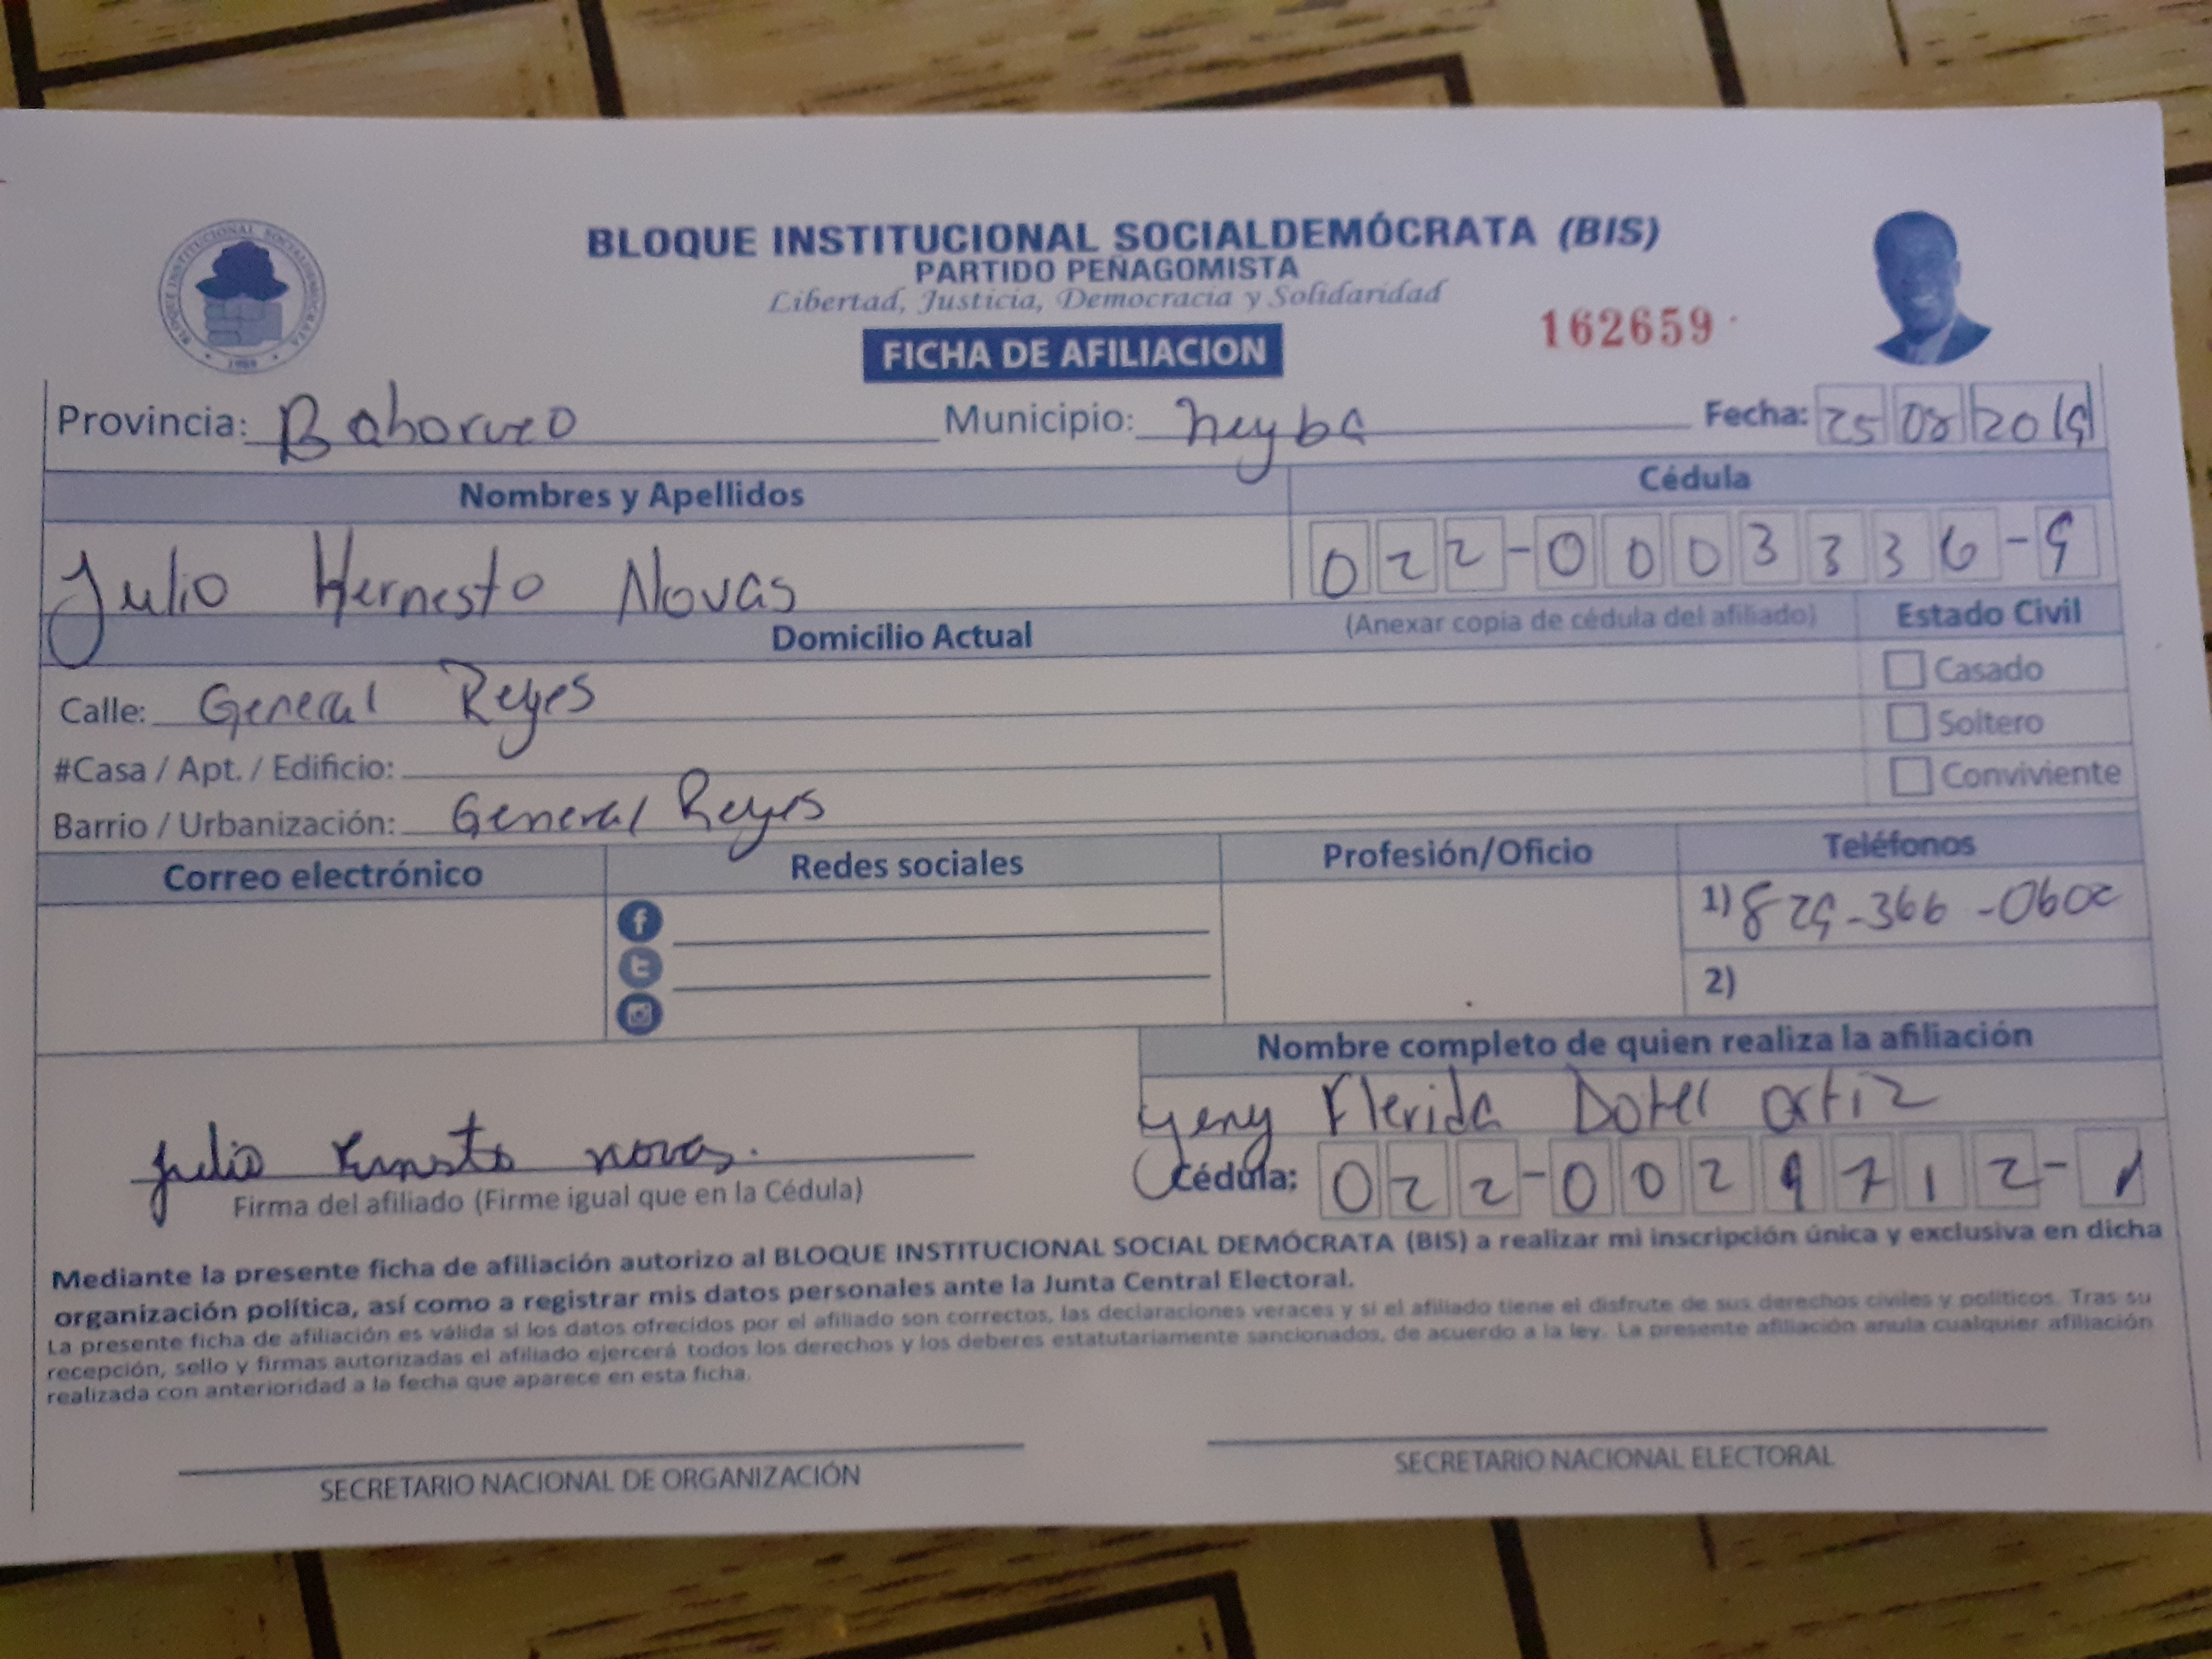 BLOQUE INSTITUCIONAL SOCIALDEMÓCRATA (BIS)
PARTIDO PEÑAGOMISTA
Libertad, Justicia, Democracia y Solidaridad
BLOQUE INSTITUCIONAL SOCIALDEMÓCRATA
162659
FICHA DE AFILIACION
Provincia: Bahoruco Municipio: Neyba Fecha: 25 08 2019
Nombres y Apellidos Cédula
Julio Hernesto Novas 022-0003336-9
Domicilio Actual (Anexar copia de cédula del afiliado) Estado Civil
Calle: General Reyes Casado
Soltero
#Casa / Apt. / Edificio: Conviviente
Barrio / Urbanización: General Reyes
Correo electrónico Redes sociales Profesión/Oficio Teléfonos
1) 829-366-0602
2)
Nombre completo de quien realiza la afiliación
Yeny Flerida Dotel Ortiz
Julio Ernesto novas.
Cédula: 022-0029712-1
Firma del afiliado (Firme igual que en la Cédula)
Mediante la presente ficha de afiliación autorizo al BLOQUE INSTITUCIONAL SOCIAL DEMÓCRATA (BIS) a realizar mi inscripción única y exclusiva en dicha
organización política, así como a registrar mis datos personales ante la Junta Central Electoral.
La presente ficha de afiliación es válida si los datos ofrecidos por el afiliado son correctos, las declaraciones veraces y si el afiliado tiene el disfrute de sus derechos civiles y políticos. Tras su
recepción, sello y firmas autorizadas el afiliado ejercerá todos los derechos y los deberes estatutariamente sancionados, de acuerdo a la ley. La presente afiliación anula cualquier afiliación
realizada con anterioridad a la fecha que aparece en esta ficha.
SECRETARIO NACIONAL DE ORGANIZACIÓN SECRETARIO NACIONAL ELECTORAL